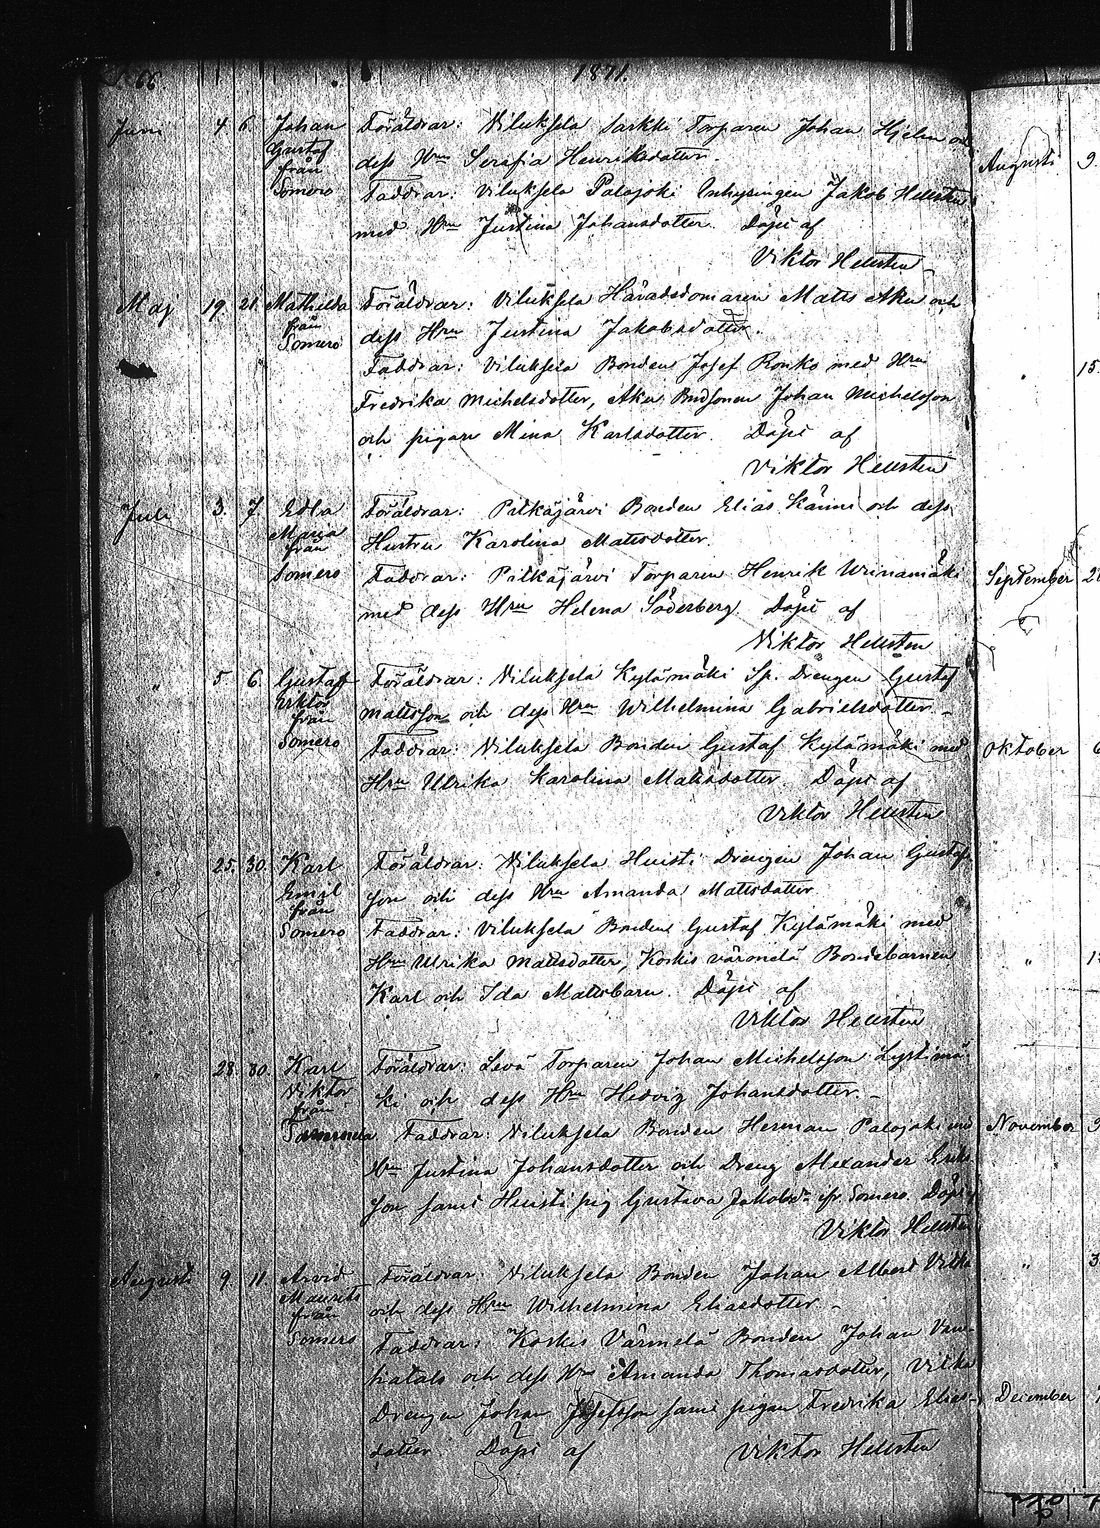 66.
1871.
Juni 4. 6. Johan Föräldrar: Viluksela Sarkki Torparen Johan Hjelm och
Gustaf dess Hru Serafia Henriksdotter.
från
Somero Faddrar: Viluksela Palojoki Inhysingen Jakob Hellsten
med Hru Justina Johansdotter. Döpt af
Viktor Hellsten
Maj 19. 21. Mathilda Föräldrar: Viluksela Häradsdomaren Matts Aku och
från dess Hru Justina Jakobsdotter.
Somero
Faddrar: Viluksela Bonden Josef Ronko med Hru
Fredrika Michelsdotter, Aku Bndsonen Johan Michelsson
och pigan Mina Karlsdotter. Döpt af
Viktor Hellsten
Juli 3. 7. Edla Föräldrar: Pitkäjärvi Bonden Elias Känni och dess
Maria Hustru Karolina Mattsdotter.
från
Somero Faddrar: Pitkäjärvi Torparen Henrik
med dess Hru Helena Söderberg. Döpt af
Viktor Hellsten
" 5 6. Gustaf Föräldrar: Viluksela Kylämäki Sp. Drengen Gustaf
Viktor Mattsson och dess Hru Wilhelmina Gabrielsdotter
från
Somero Faddrar: Viluksela Bonden Gustaf Kylämäki med
Hru Ulrika Karolina Mattsdotter. Döpt af
Viktor Hellsten
" 25. 30. Karl Föräldrar: Viluksela Huisti Drengen Johan Gustafs-
Emil son och dess Hru Amanda Mattsdotter
från
Somero Faddrar: Viluksela Bonden Gustaf Kylämäki med
Hru Ulrika Mattsdotter, Koskis Värmelä Bondebarnen
Karl och Ida Mattsbarn. Döpt af
Viktor Hellsten
" 28. 30. Karl Föräldrar: Levä Torparen Johan Michelsson Lystimä-
Viktor ki och dess Hru Hedvig Johansdotter.
från
Tammela Faddrar: Viluksela Bonden Herman Palojoki med
Hru Justina Johansdotter och Dreng Alexander Eriks-
son samt Huisti pig Gustava Jakobsdr fr. Somero. Döpt af
Viktor Hellsten
Augusti 9. 11. Arvid Föräldrar: Viluksela Bonden Johan Albert Vilka
Maurits och dess Hru Wilhelmina Eliasdotter
från
Somero Faddrar: Koskis Värmelä Bonden Johan Van-
hatalo och dess Hru Amanda Thomasdotter, Vilka
Drengen Johan Josefsson samt pigan Fredrika Elias-
dotter Döpt af Viktor Hellsten
Augusti 9.
" 15.
September
Oktober 6
"
November
"
December